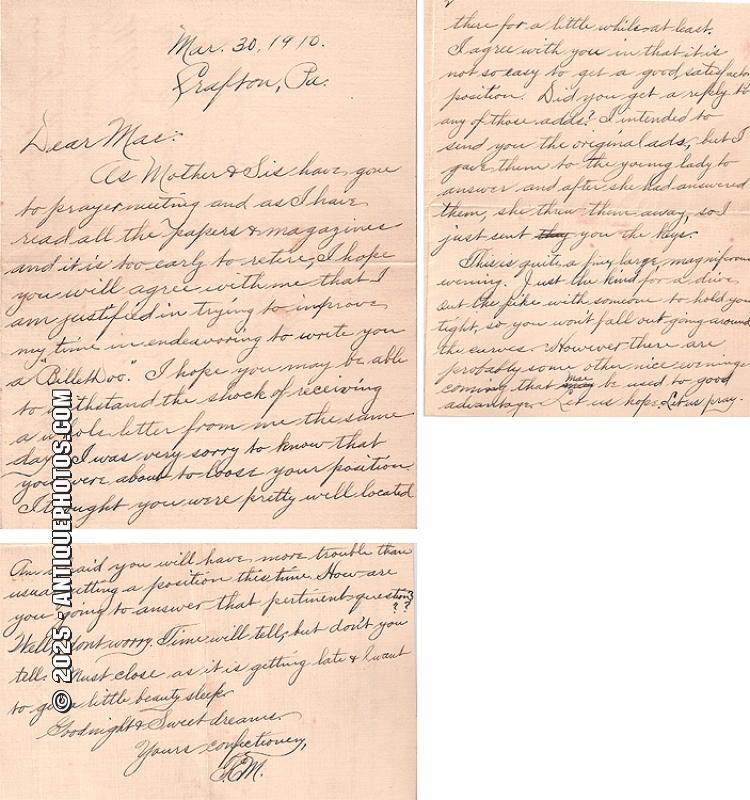 Mar. 30, 1910.
Grafton, Pa.
Dear Mae:
As Mother & Sis have gone
to prayer meeting and as I have
read all the papers & magazines
and it is too early to retire, I hope
you will agree with me that I
am justified in trying to improve
my time in endeavoring to write you
a "Billethdoo." I hope you may be able
to withstand the shock of receiving
a whole letter from me the same
day. I was very sorry to know that
you were about to loose your position.
I thought you were pretty well located
there for a little while at least.
I agree with you in that it is
not so easy to get a good, satisfactory
position. Did you get a reply to
any of those adds? I intended to
send you the original ads, but I
gave them to the young lady to
answer and after she had answered
them, she threw them away, so I
just sent they you the keys.
This is quite a fine, large, magnificous
evening. Just the kind for a drive
out the pike with someone to hold you
tight, so you won't fall out going around
the curves. However there are
probably some other nice evenings
coming that may be used to good
advantage. Let us hope. Let us pray.
Am afraid you will have more trouble than
usual getting a position this time. How are
you going to answer that pertinent question?
??
Well, dont worry. Time will tell, but don't you
tell. Must close as it is getting late & I want
to get a little beauty sleep.
Goodnight & Sweet dreams.
Yours confectionery,
EM.
© 2025 - ANTIQUEPHOTOS.COM